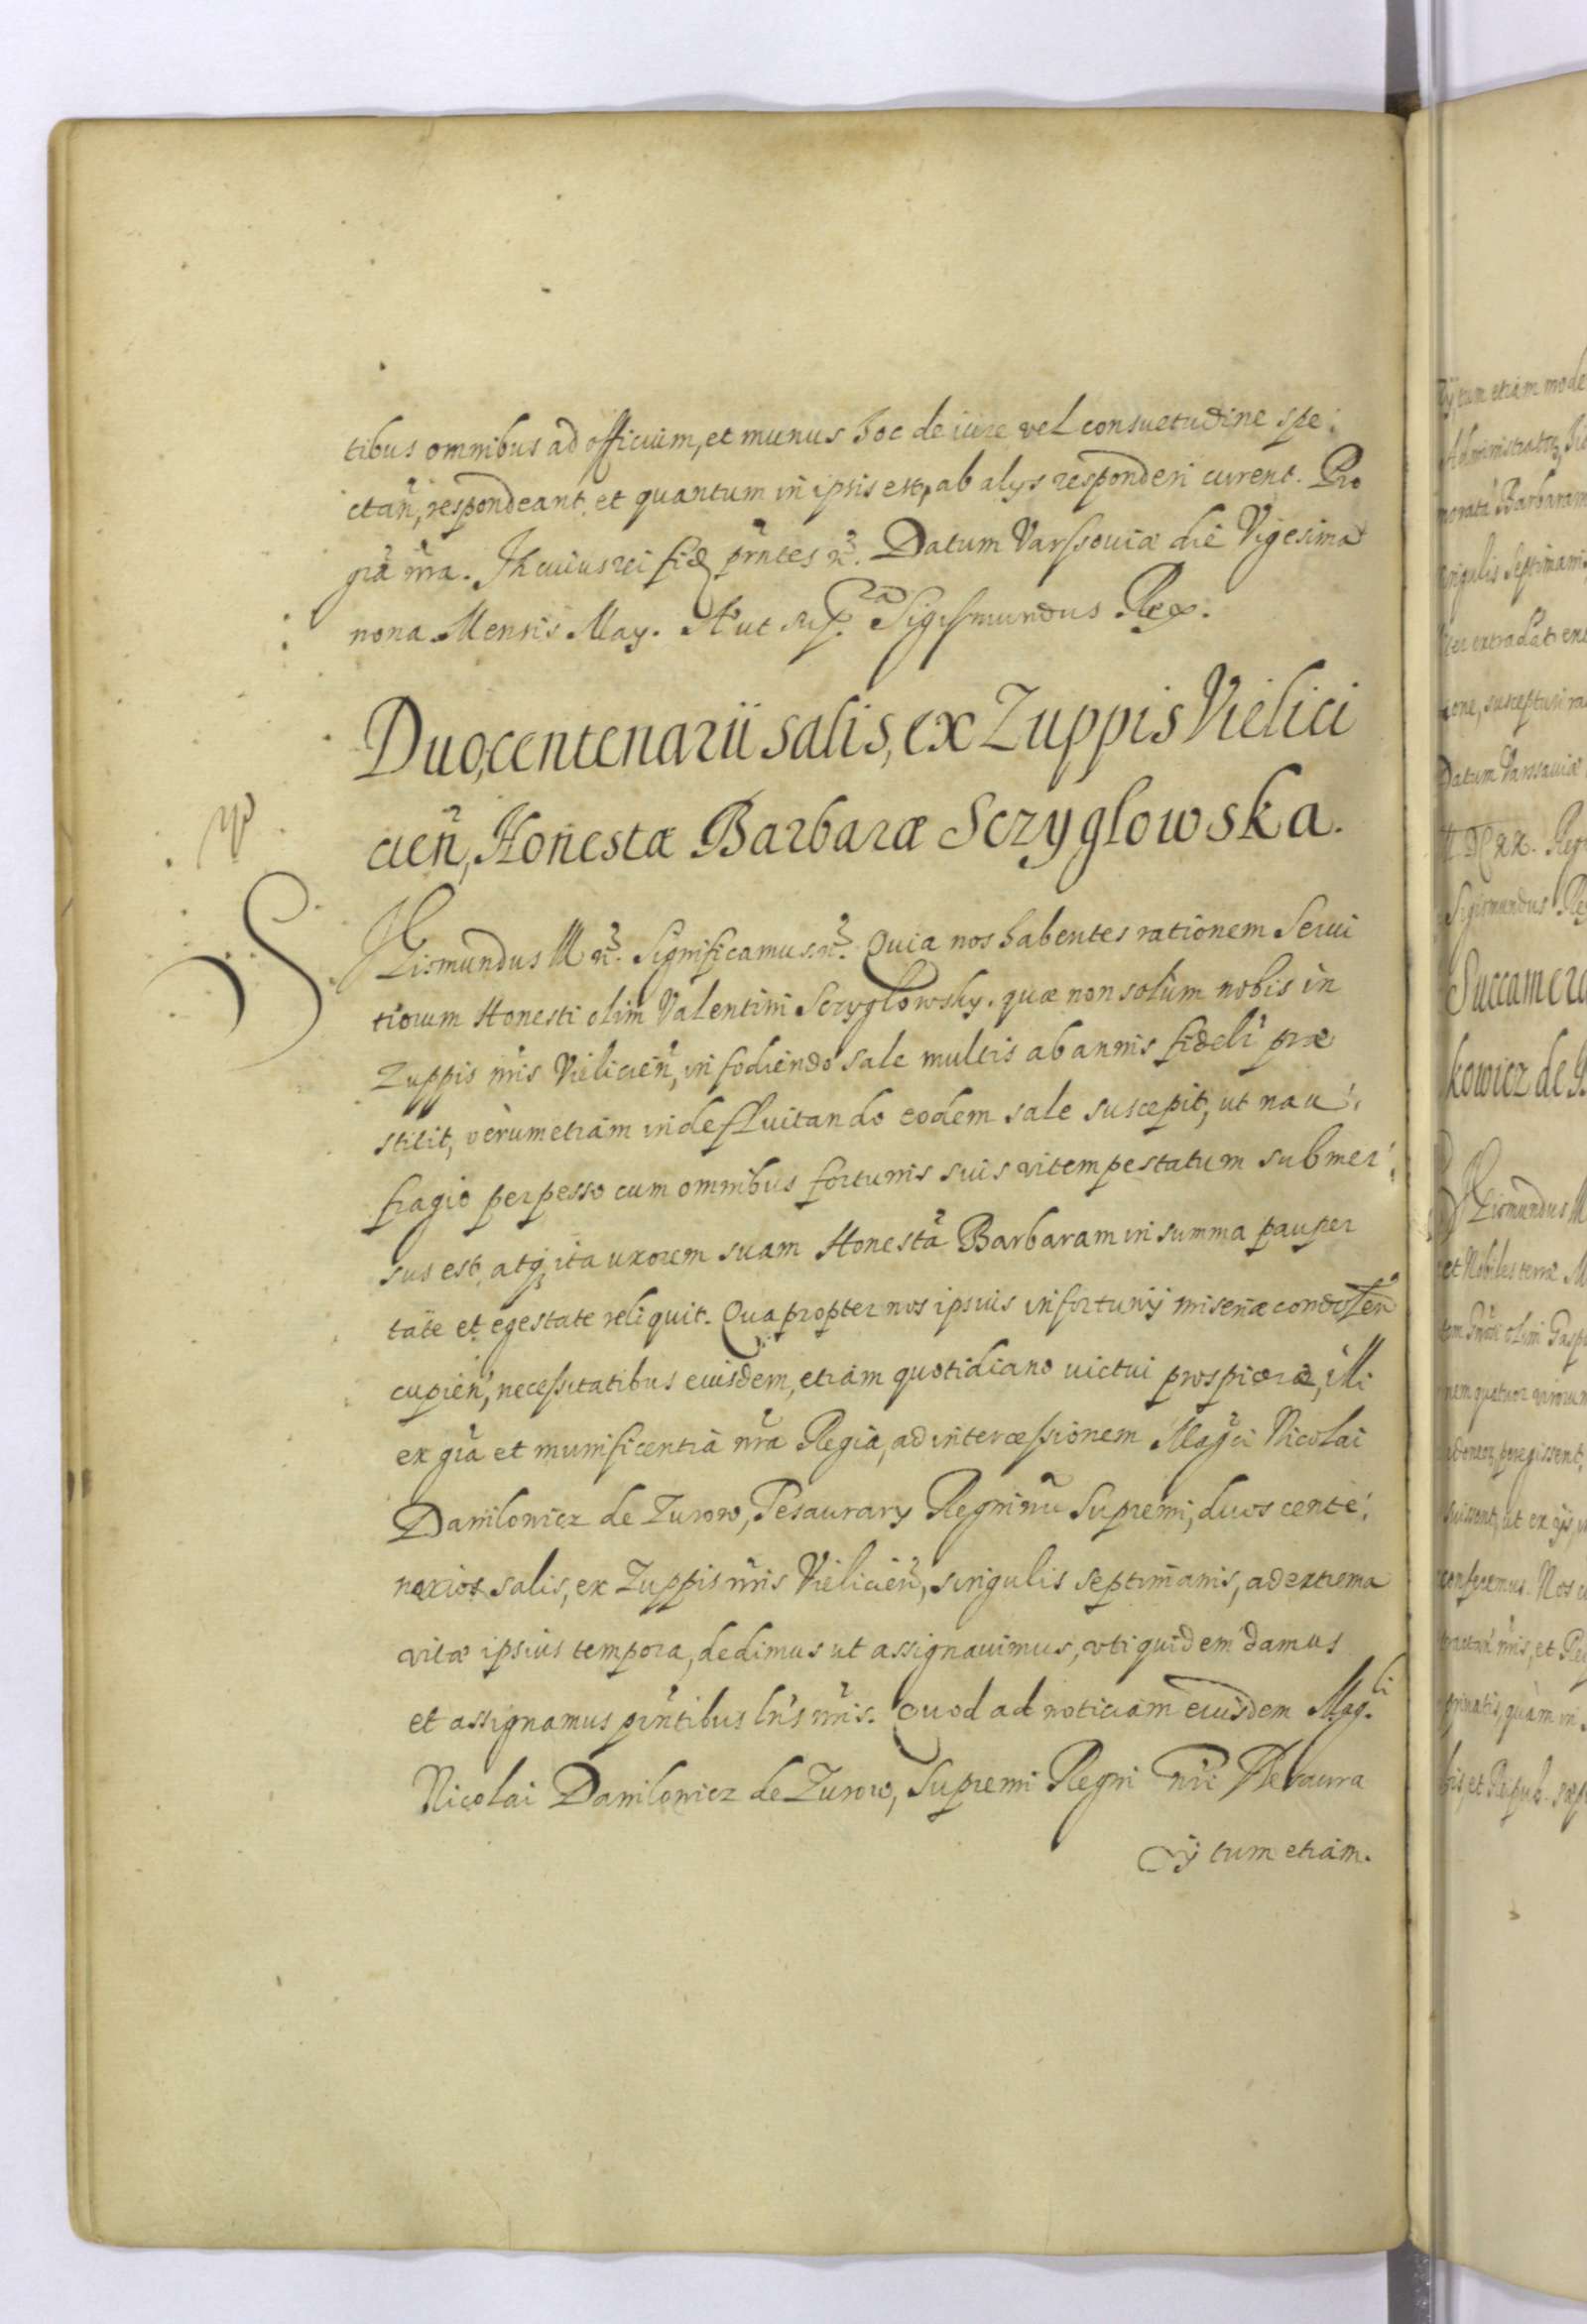 tibus omnibus ad officium, et munus hoc de iure vel consuetudine spe:
ctan̄, respondeant, et quantum in ipsis est, ab alys responderi curent. Pro
grã nr̃a. In cuius rei fidẽ pr̃ntes etc. Datum Varssouiæ die Vigesima
nona Mensis May. A° ut sup. Sigismundus Rex.
Duo, centenarii salis, ex Zuppis Vielici
cien̄, Honestæ Barbaræ Sczyglowska.
Sigismundus III etc. Significamus etc. Quia nos habentes rationem Serui
tiorum Honesti olim Valentini Sczyglowsky, quæ non solùm nobis in
Zuppis nr̃is Vielicien̄, in fodiendo sale multis ab annis fideli præ
stitit, verumetiam in defluitando eodem sale suscepit, ut nau:
fragio perpesso cum omnibus fortunis suis vi tempestatum submer:
sus est, atq̃ ita uxorem suam Honestã Barbaram in summa pauper
tate et egestate reliquit. Quapropter nos ipsius infortunij miseriæ condolen̄
cupien̄, necessitatibus eiusdem, etiam quotidiano uictui prospicere, illi
ex grã et munificentia nr̃a Regia, ad intercessionem Mag̃ci Nicolai
Danilowicz de Zurow, Tesaurary Regni nr̃i Supremi, duos cente:
narios salis, ex Zuppis nr̃is Vielicien̄, singulis septimanis, ad extrema
vitæ ipsius tempora, dedimus ut assignauimus, vti quidem damus
et assignamus pr̃ntibus lr̃is nr̃is. Quod ad noticiam eiusdem Mag.ci
Nicolai Danilowicz de Zurow, Supremi Regni nr̃i Thesaura
rij tum etiam.